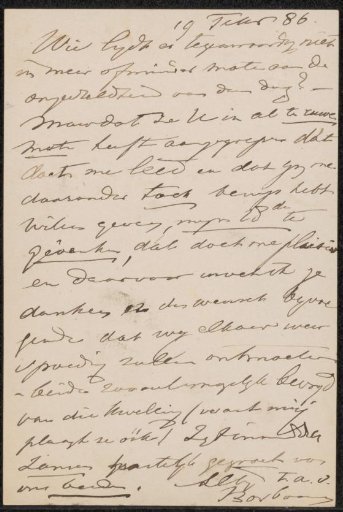 19 Febr 86.
Wie lydt er tegenwoordig niet
in meer of minder mate aan de
ongesteldheid van den dag? –
Maar dat ze U in al te ruwe
mate heeft aangegrepen dat
doet me leed en dat gy me
daaronder toch bewys hebt
willen geven, mijns te
gedenken, dat doet me plaisir
en daarvoor wensch ik je
danken en de wensch byvoe
gende dat wy elkaar weer
spoedig zullen ontmoeten
– beiden zooveel mogelijk bevryd
van die kwelling (want mij
plaagt ze ook)
Zamen hartelijk gegroet van
ons beiden. t. a. v.
Bosboom